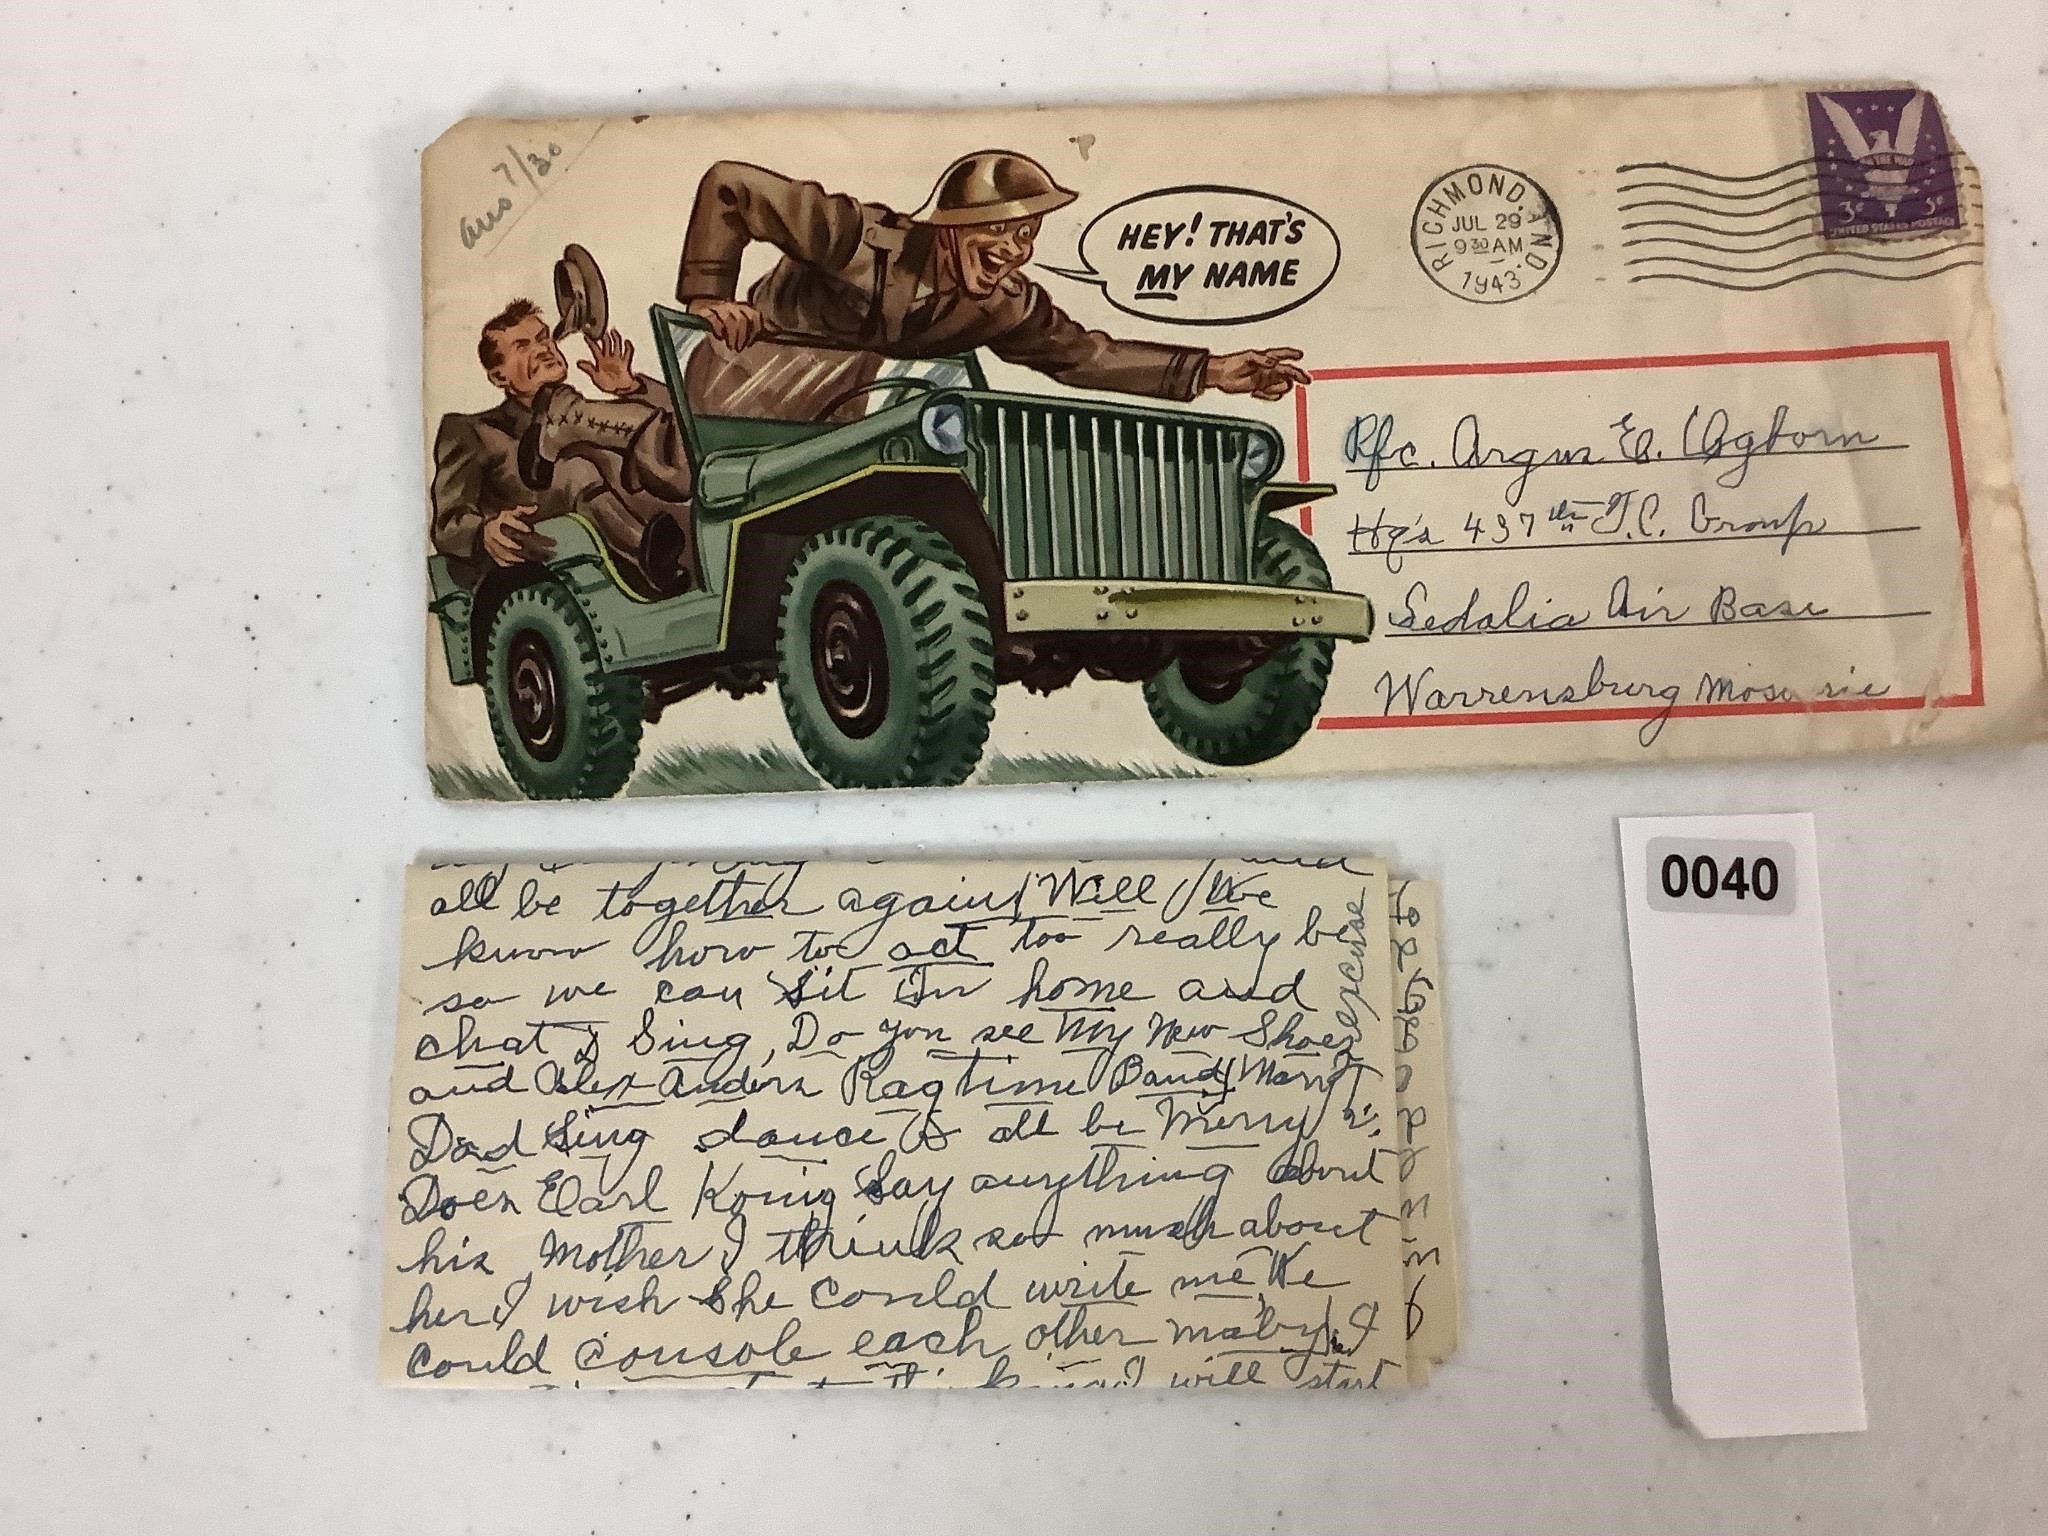 ans 7/30
HEY! THAT'S
MY NAME
RICHMOND, IND.
JUL 29
9 30 AM
1943
3¢ 3¢
UNITED STATES POSTAGE
Pfc. Argus E. Ogborn
Hq's 437th T.C. Group
Sedalia Air Base
Warrensburg
0040
all be together again Will We
know how to act too really be
so we can Sit In home and
chat & Sing, Do you see My New Shoes
and Alex Anders Ragtime Band
Dad Sing dance & all be Merry
Does Earl Konig Say anything about
his Mother I think so much about
her I wish She Could write me We
could console each other I
will start
excuse